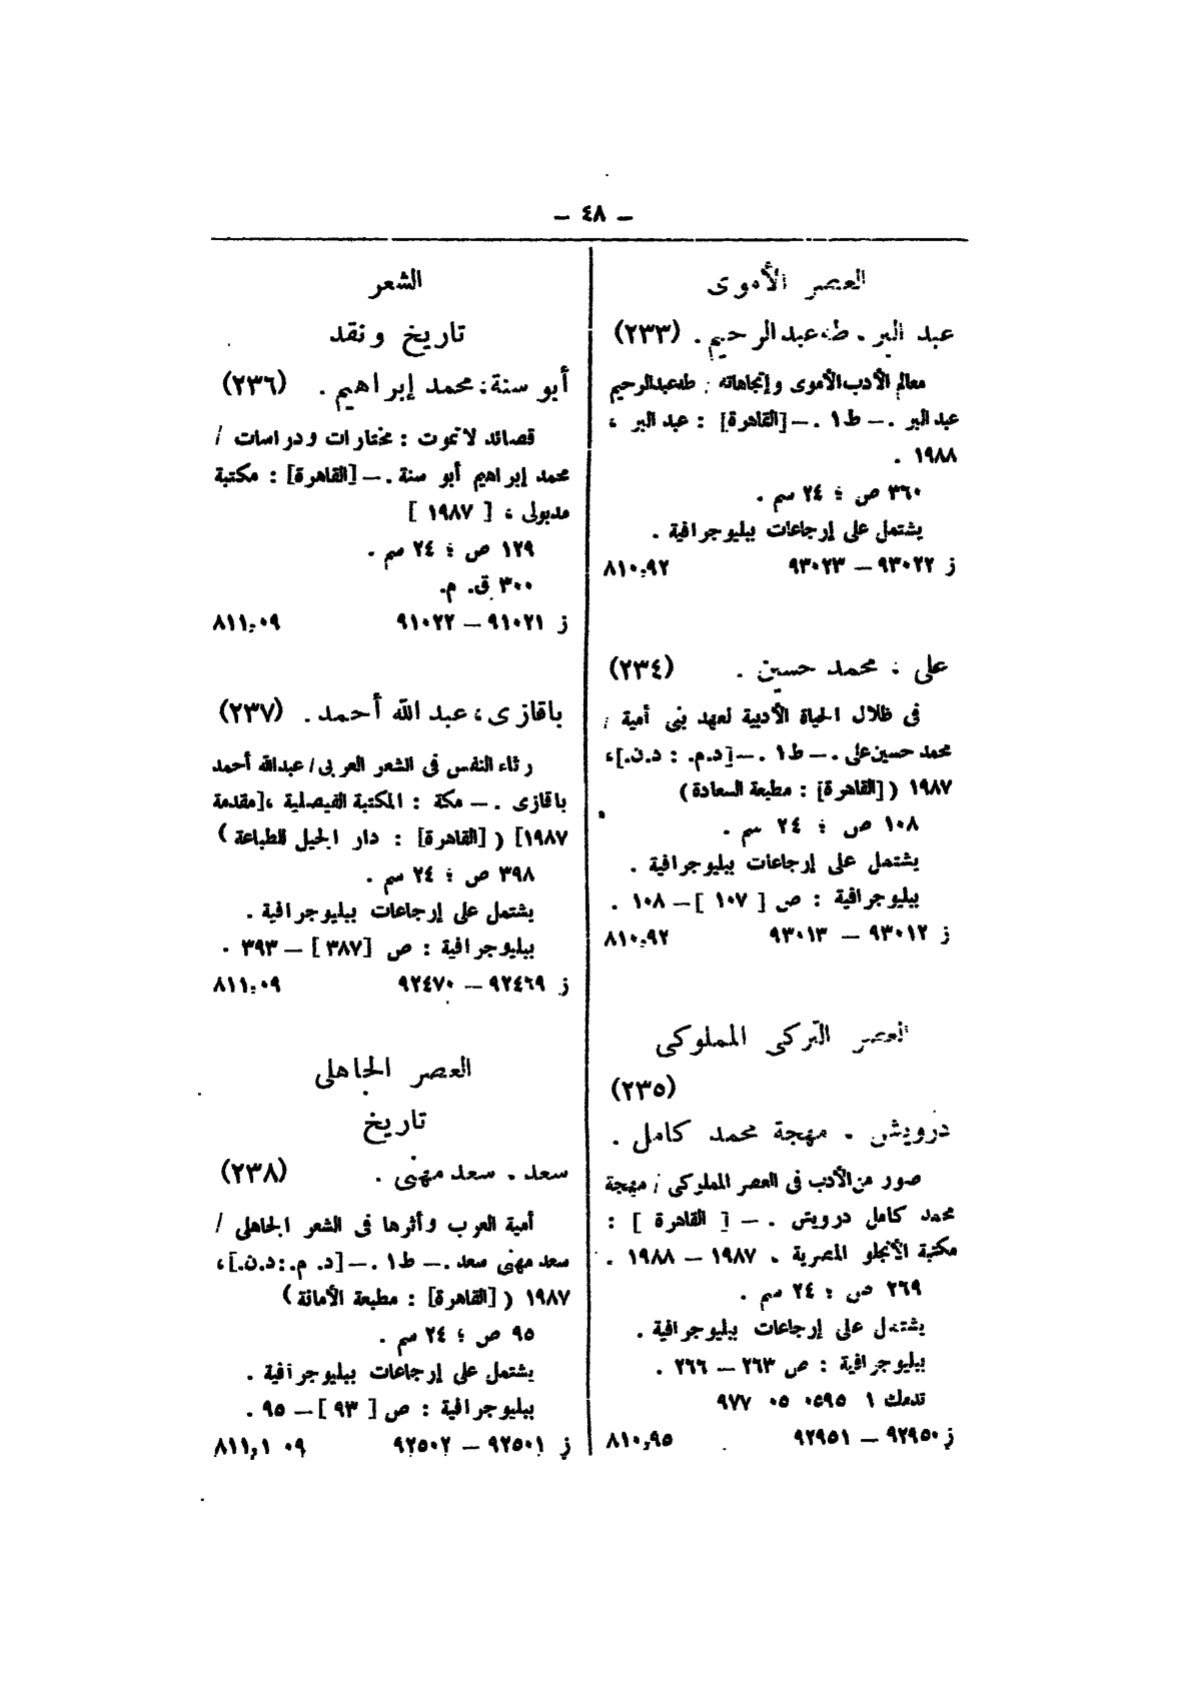 – ٤٨ –
العصر الأموى
عبد البر ، طه عبد الرحيم . (٢٣٣)
معالم الأدب الأموى وإتجاهاته / طه عبد الرحيم
عبد البر . – ط١ . – [القاهرة] : عبد البر ،
١٩٨٨ .
٣٦٠ ص ؛ ٢٤ سم .
يشتمل على إرجاعات ببليوجرافية .
ز ٩٣٠٢٢ – ٩٣٠٢٣ ٨١٠,٩٢
على ، محمد حسين . (٢٣٤)
فى ظلال الحياة الأدبية لعهد بنى أمية /
محمد حسين على . – ط١ . – [د.م. : د.ن.]،
١٩٨٧ ([القاهرة] : مطبعة السعادة)
١٠٨ ص ؛ ٢٤ سم .
يشتمل على إرجاعات ببليوجرافية .
ببليوجرافية : ص [ ١٠٧ ] – ١٠٨ .
ز ٩٣٠١٢ – ٩٣٠١٣ ٨١٠,٩٢
العصر التركى المملوكى
(٢٣٥)
درويش ، مهجة محمد كامل .
صور من الأدب فى العصر المملوكى / مهجة
محمد كامل درويش . – [ القاهرة ] :
مكتبة الأنجلو المصرية ، ١٩٨٧ – ١٩٨٨ .
٢٦٩ ص ؛ ٢٤ سم .
يشتمل على إرجاعات ببليوجرافية .
ببليوجرافية : ص ٢٦٣ – ٢٦٦ .
تدمك ١ ٠٥٩٥ ٠٥ ٩٧٧
ز ٩٢٩٥٠ – ٩٢٩٥١ ٨١٠,٩٥
الشعر
تاريخ ونقد
أبو سنة ، محمد إبراهيم . (٢٣٦)
قصائد لا تموت : مختارات ودراسات /
محمد إبراهيم أبو سنة . – [القاهرة] : مكتبة
مدبولى ، [ ١٩٨٧ ]
١٢٩ ص ؛ ٢٤ سم .
٣٠٠ ق. م.
ز ٩١٠٢١ – ٩١٠٢٢ ٨١١,٠٩
باقازى ، عبد الله أحمد . (٢٣٧)
رثاء النفس فى الشعر العربى / عبدالله أحمد
باقازى . – مكة : المكتبة الفيصلية ،[مقدمة
١٩٨٧] ( [القاهرة] : دار الجيل للطباعة )
٣٩٨ ص ؛ ٢٤ سم .
يشتمل على إرجاعات ببليوجرافية .
ببليوجرافية : ص [٣٨٧ ] – ٣٩٣ .
ز ٩٢٤٦٩ – ٩٢٤٧٠ ٨١١,٠٩
العصر الجاهلى
تاريخ
سعد ، سعد مهنى . (٢٣٨)
أمية العرب وأثرها فى الشعر الجاهلى /
سعد مهنى سعد . – ط١ . – [د. م. : د.ن.]،
١٩٨٧ ( [القاهرة] : مطبعة الأمانة )
٩٥ ص ؛ ٢٤ سم .
يشتمل على إرجاعات ببليوجرافية .
ببليوجرافية : ص [ ٩٣ ] – ٩٥ .
ز ٩٢٥٠١ – ٩٢٥٠٢ ٨١١,١ ٠٩